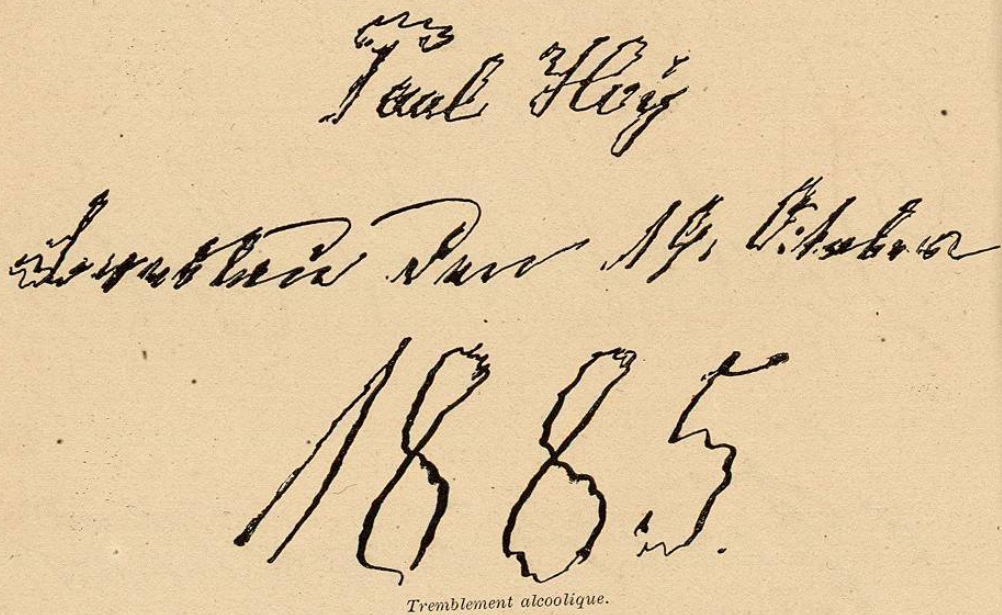 Paul Hoÿ
den 19. October
1885.
Tremblement alcoolique.